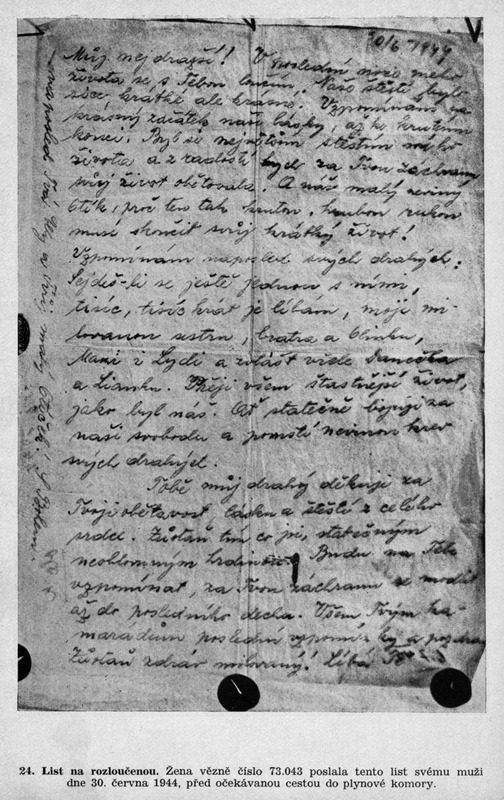 30/6-1944
Můj nejdražší! V poslední noci mého
života se s Tebou loučím. Naše štěstí bylo
sice krátké ale krásné. Vzpomínám na
krásný začátek naší lásky, až ke krutému
konci. Byl si největším štěstím mého
života a z radostí bych za Tvou záchranu
svůj život obětovala. A náš malý nevinný
Otík, proč ten tak krutou, hrubou rukou
musí skončit svůj krátký život!
Vzpomínám naposled svých drahých:
Sejdeš-li se ještě jednou s nimi,
tisíc, tisíc krát je líbám, moji mi-
lovanou sestru, bratra a Olinku,
i Lydi a zvlášť vřele Danečka
a Lianku. Přeji všem šťastnější život,
jako byl náš. Ať statečně bojují za
naši svobodu a pomstí nevinnou krev
svých drahých.
Tobě můj drahý děkuji za
Tvoji obětavost lásku a štěstí z celého
srdce. Zůstaň tím co jsi, statečným
neoblomným hrdinou! Budu na Tebe
vzpomínat, za Tvou záchranu se modlit
až do posledního dechu. Všem Tvým ka-
marádům poslední vzpomínky a pozdrav
Zůstaň zdráv milovaný! Líbá Tě
naposled Tvá a Tvůj malý Otíček!
24. List na rozloučenou. Žena vězně číslo 73.043 poslala tento list svému muži
dne 30. června 1944, před očekávanou cestou do plynové komory.